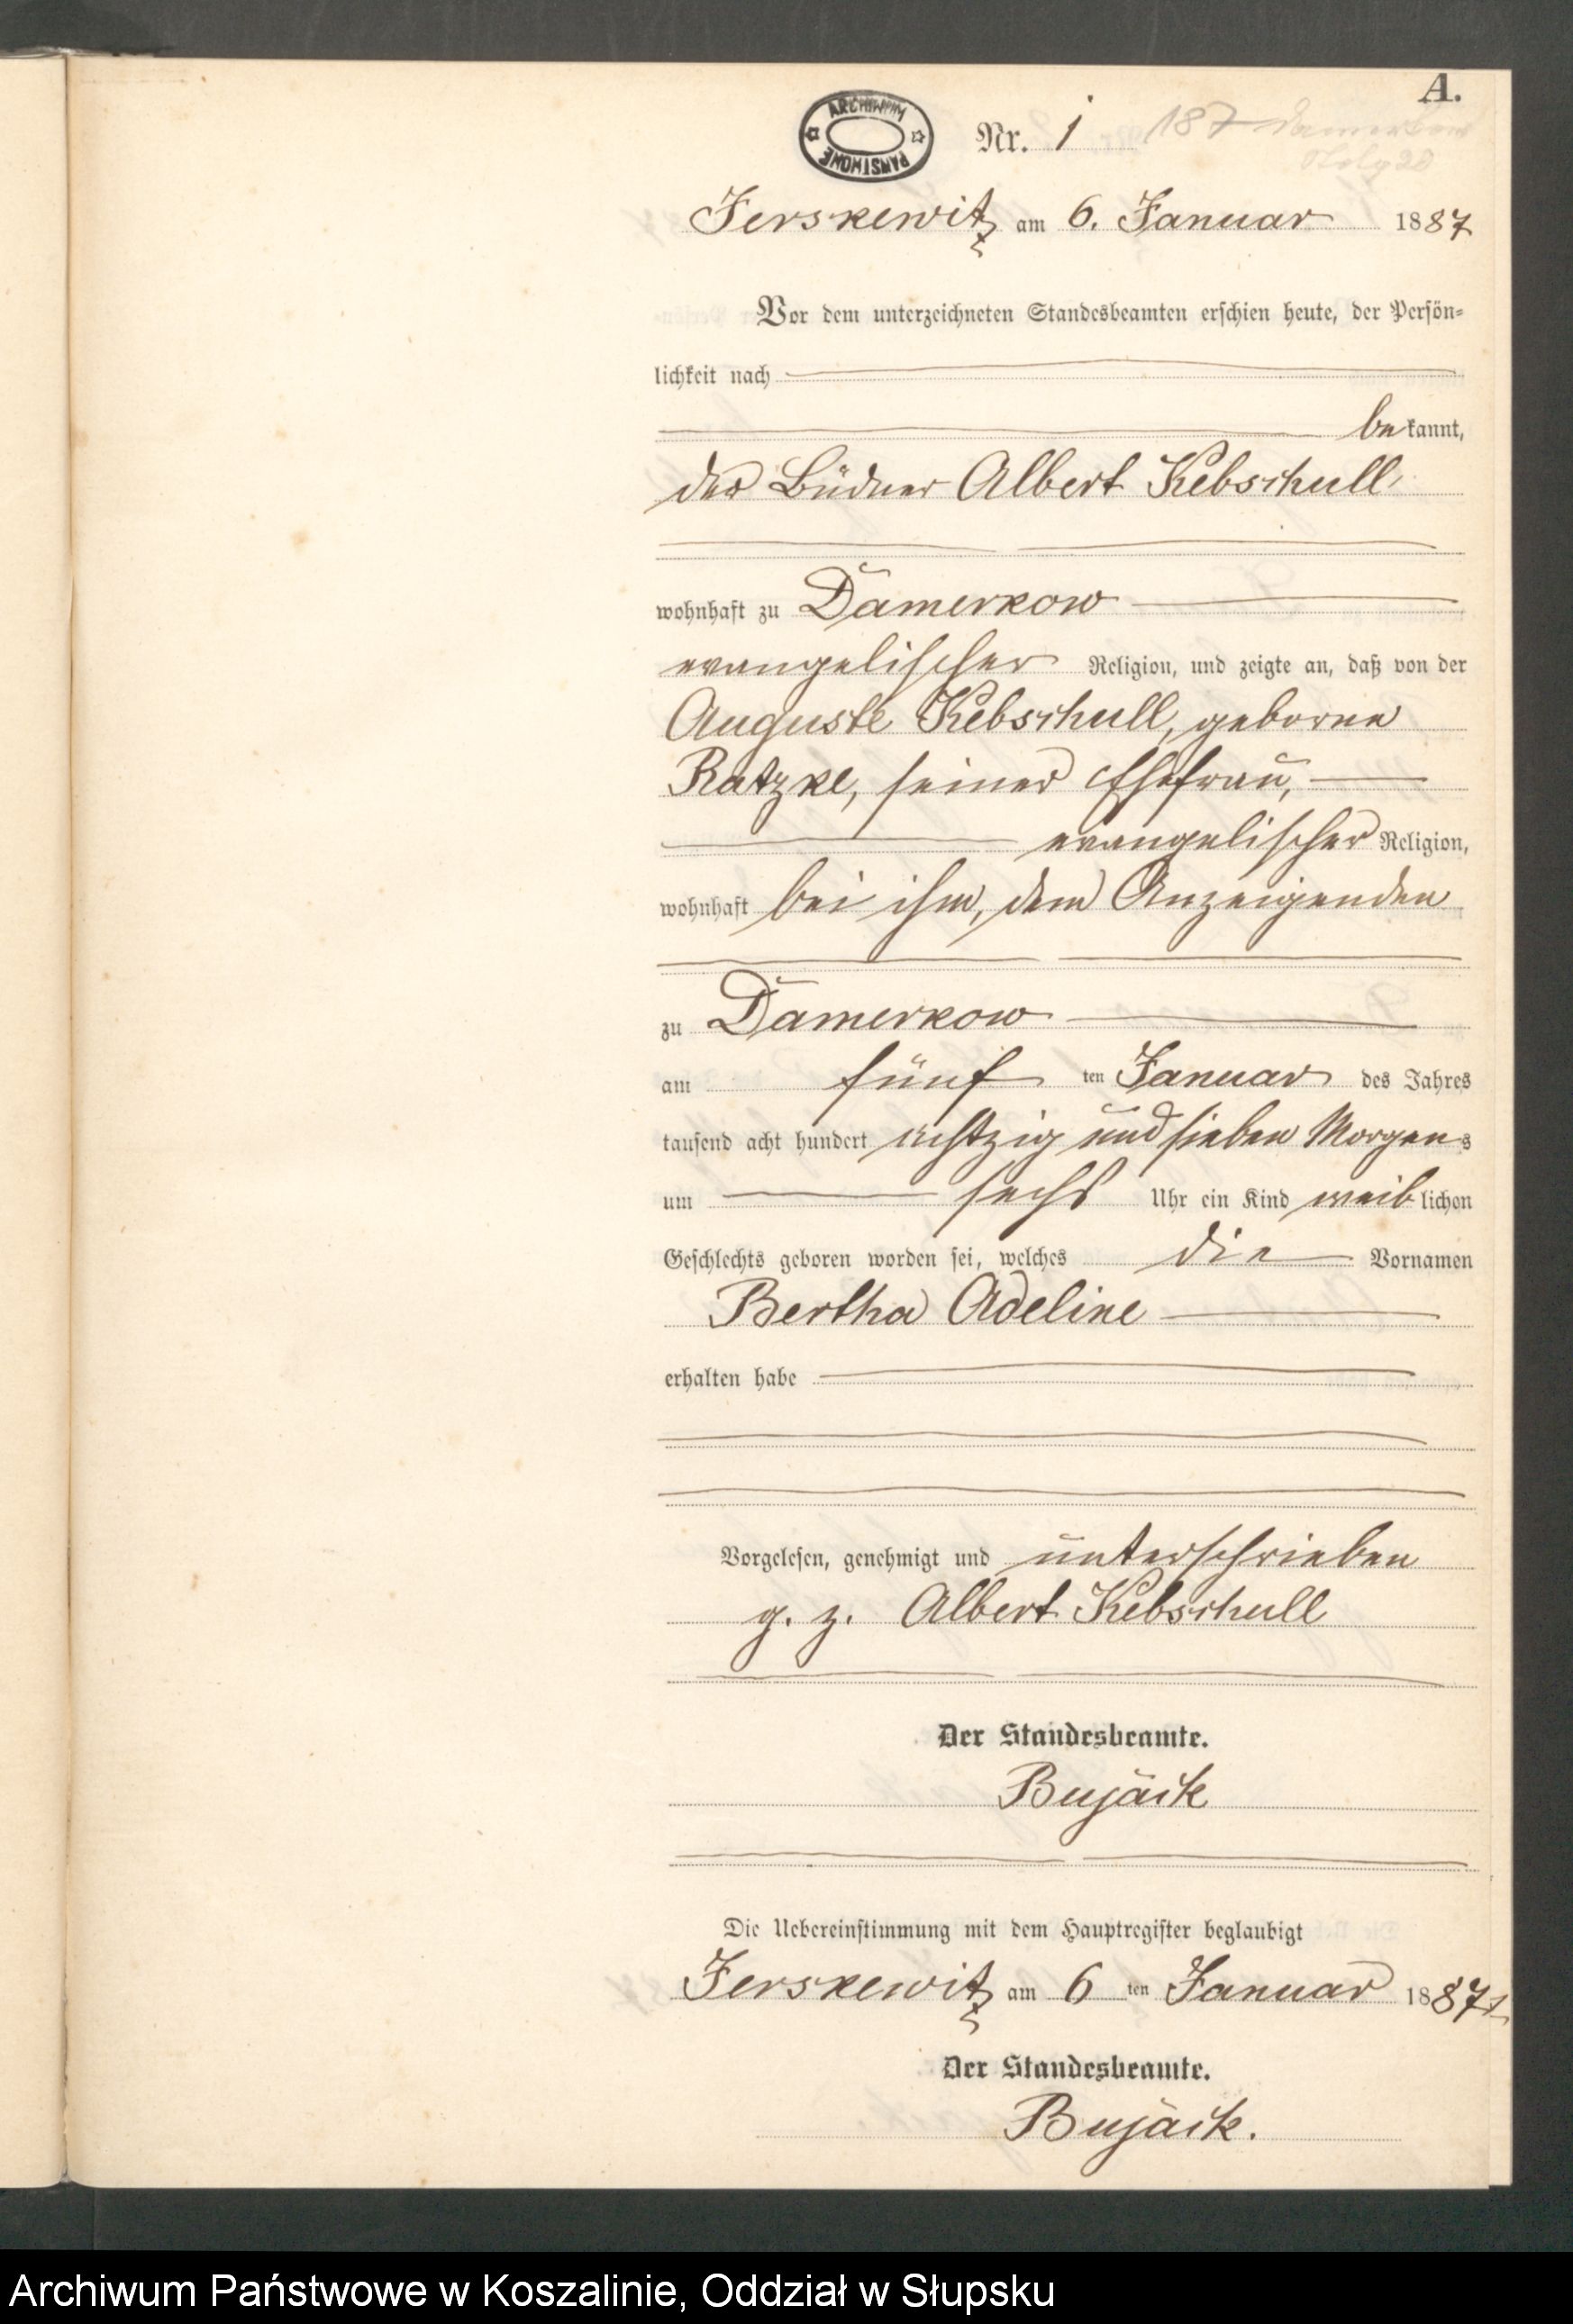 A.
ARCHIWUM
PAŃSTWOWE
Nr. 1
187 Damerkow
Jerskewitz am 6. Januar 1887
Vor dem unterzeichneten Standesbeamten erschien heute, der Persön-
lichkeit nach
bekannt,
der Büdner Albert Kebschull,
wohnhaft zu Damerkow
evangelischer Religion, und zeigte an, daß von der
Auguste Kebschull, geborne
Ratzke, seiner Ehefrau,
evangelischer Religion,
wohnhaft bei ihm, dem Anzeigenden
zu Damerkow
am fünf ten Januar des Jahres
tausend acht hundert achtzig und sieben Morgens
um sechs Uhr ein Kind weiblichen
Geschlechts geboren worden sei, welches die Vornamen
Bertha Adeline
erhalten habe
Vorgelesen, genehmigt und unterschrieben
g. z. Albert Kebschull
Der Standesbeamte.
Bujack
Die Uebereinstimmung mit dem Hauptregister beglaubigt
Jerskewitz am 6 ten Januar 1887
Der Standesbeamte.
Bujack.
Archiwum Państwowe w Koszalinie, Oddział w Słupsku